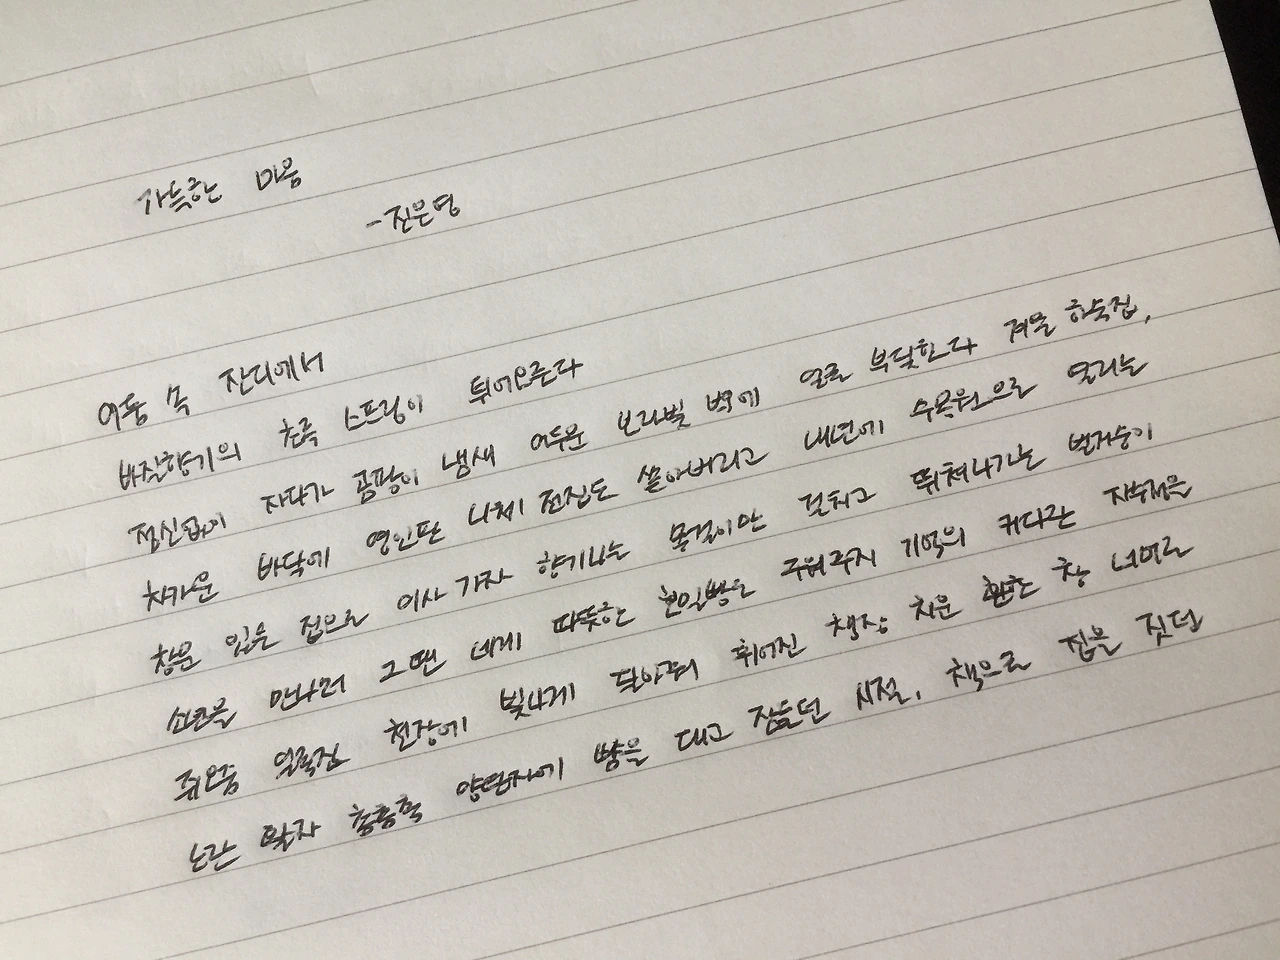 가득한 마음
- 진은영
어둠 속 잔디에서
바질향기의 초록 스프링이 튀어오른다
정신없이 자다가 곰팡이 냄새 어두운 보라빛 벽에 얼굴 부딪힌다 겨울 하숙집,
차가운 바닥에 영인판 나체 전진도 쏟아버리고 내년에 수목원으로 열리는
창문 있는 집으로 이사 가자 향기나는 물결이란 걸치고 뛰쳐나가는 벌거숭이
신코를 만나러 그땐 네게 따뜻한 호밀빵을 구워주지 기억의 커다란 자수정을
쥐오줌 얼룩진 천장에 빛나게 달아줘 휘어진 책장 치운 환한 창 너머로
노란 활자 총총한 양탄자에 뺨을 대고 잠들던 시절, 책으로 집을 짓던